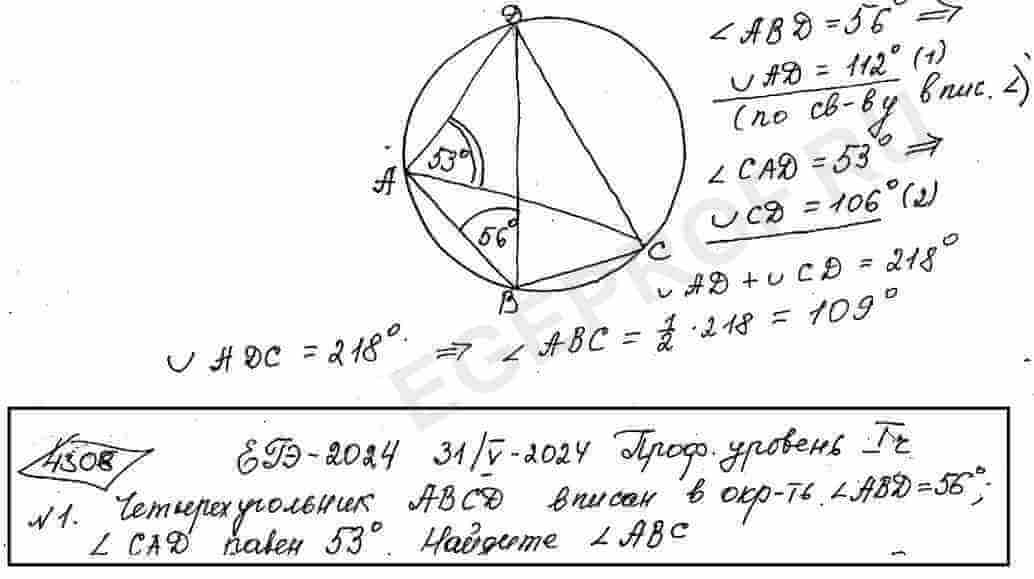 D
∠ABD = 56° ⇒
∪AD = 112° (1)
(по св-ву впис. ∠)
53°
A
∠CAD = 53° ⇒
∪CD = 106° (2)
56°
C
B
∪AD + ∪CD = 218°
∪ADC = 218° ⇒ ∠ABC = 1/2 · 218 = 109°
EGEPROF.RU
4308 ЕГЭ-2024 31/V-2024 Проф. уровень Iч
№1. Четырехугольник ABCD вписан в окр-ть. ∠ABD = 56°;
∠CAD равен 53°. Найдите ∠ABC